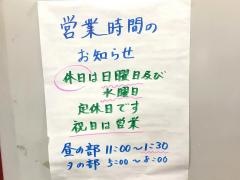 営業時間の
お知らせ
休日は日曜日及び
水曜日
定休日です
祝日は営業
昼の部 11:00〜1:30
夕の部 5:00〜8:00